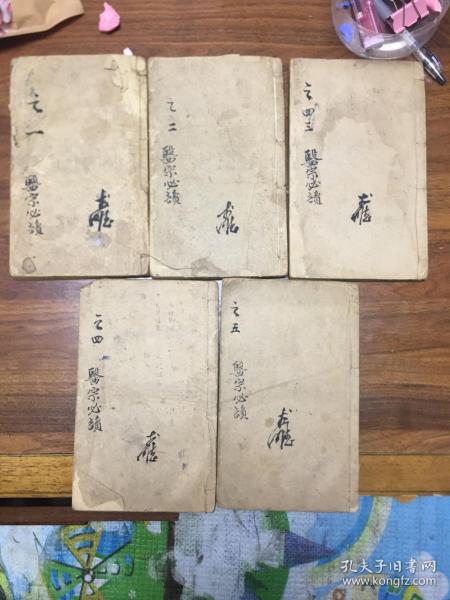 之一
醫宗必讀
之二
醫宗必讀
之四三
醫宗必讀
之四
醫宗必讀
之五
醫宗必讀
孔夫子旧书网
www.kongfz.com